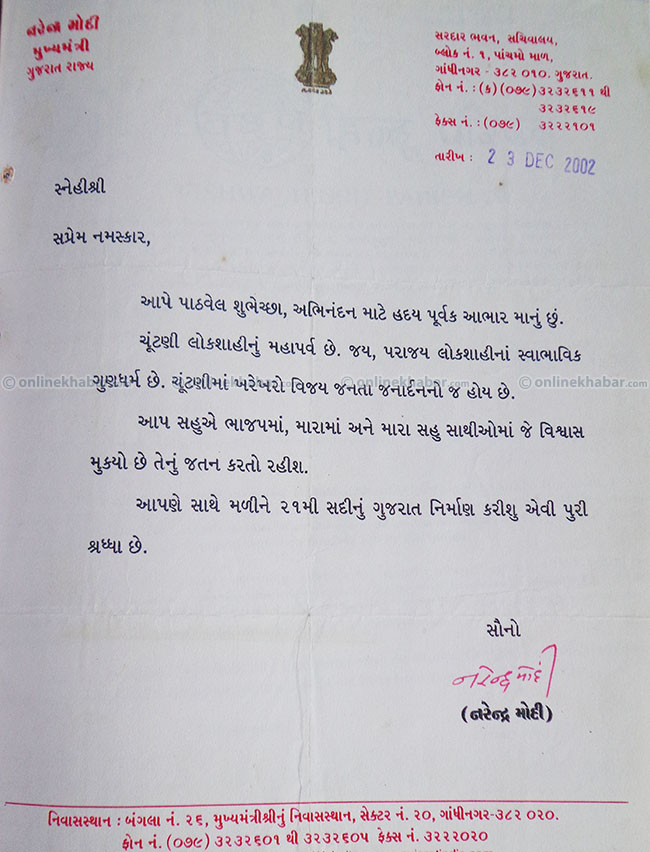 નરેન્દ્ર મોદી
મુખ્યમંત્રી
ગુજરાત રાજ્ય
સરદાર ભવન, સચિવાલય,
બ્લોક નં. ૧, પાંચમો માળ,
ગાંધીનગર - ૩૮૨ ૦૧૦. ગુજરાત.
ફોન નં. : (ક) (૦૭૯) ૩૨૩૨૬૧૧ થી
૩૨૩૨૬૧૯
ફેક્સ નં. : (૦૭૯) ૩૨૨૨૧૦૧
તારીખ : 23 DEC 2002
સ્નેહીશ્રી
સપ્રેમ નમસ્કાર,
આપે પાઠવેલ શુભેચ્છા, અભિનંદન માટે હૃદય પૂર્વક આભાર માનું છું.
ચૂંટણી લોકશાહીનું મહાપર્વ છે. જય, પરાજય લોકશાહીનાં સ્વાભાવિક
© onlinekhabar.com © onlinekhabar.com © onlinekhabar.com © onlinekhabar.com
ગુણધર્મ છે. ચૂંટણીમાં ખરેખરો વિજય જનતા જનાર્દનનો જ હોય છે.
આપ સહુએ ભાજપમાં, મારામાં અને મારા સહુ સાથીઓમાં જે વિશ્વાસ
મુકયો છે તેનું જતન કરતો રહીશ.
આપણે સાથે મળીને ૨૧મી સદીનું ગુજરાત નિર્માણ કરીશુ એવી પુરી
શ્રધ્ધા છે.
સૌનો
નરેન્દ્ર મોદી
(નરેન્દ્ર મોદી)
નિવાસસ્થાન : બંગલા નં. ૨૬, મુખ્યમંત્રીશ્રીનું નિવાસસ્થાન, સેક્ટર નં. ૨૦, ગાંધીનગર-૩૮૨ ૦૨૦.
ફોન નં. (૦૭૯) ૩૨૩૨૬૦૧ થી ૩૨૩૨૬૦૫ ફેક્સ નં. ૩૨૨૨૦૨૦